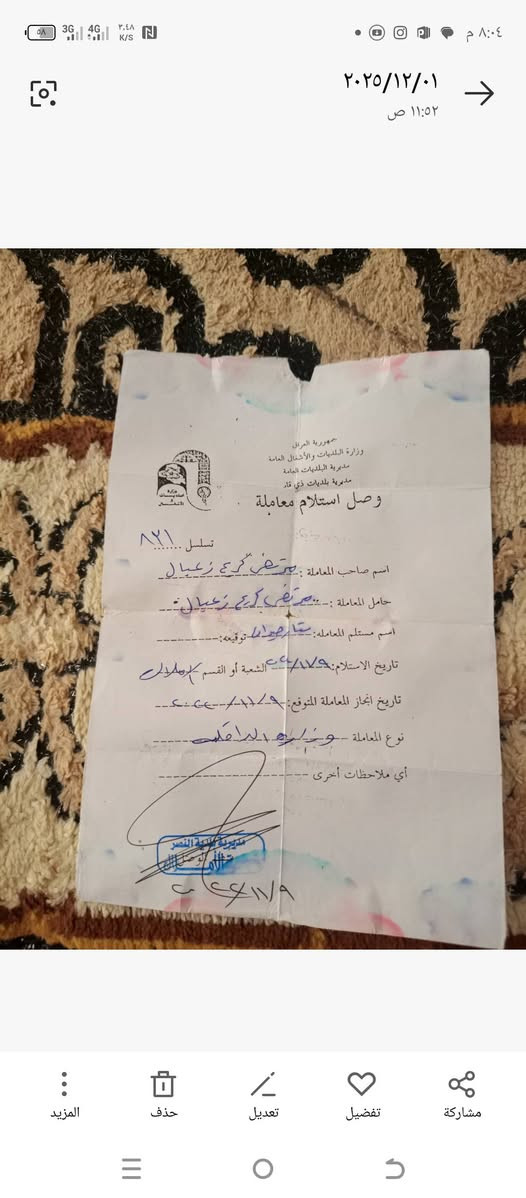 ٨:٠٤ م
3G 4G ٣.٤٨ K/S
٥٨
٢٠٢٥/١٢/٠١
١١:٥٢ ص
جمهورية العراق
وزارة البلديات والأشغال العامة
مديرية البلديات العامة
مديرية بلديات ذي قار
وصل استلام معاملة
تسلسل ٨٢١
اسم صاحب المعاملة : مرتضى كريم زعبال
حامل المعاملة : مرتضى كريم زعبال
اسم مستلم المعاملة: توقيعه:
تاريخ الاستلام: الشعبة أو القسم
تاريخ انجاز المعاملة المتوقع:
نوع المعاملة وزارة الداخلية
أي ملاحظات أخرى
مديرية بلدية النصر
مشاركة
تفضيل
تعديل
حذف
المزيد